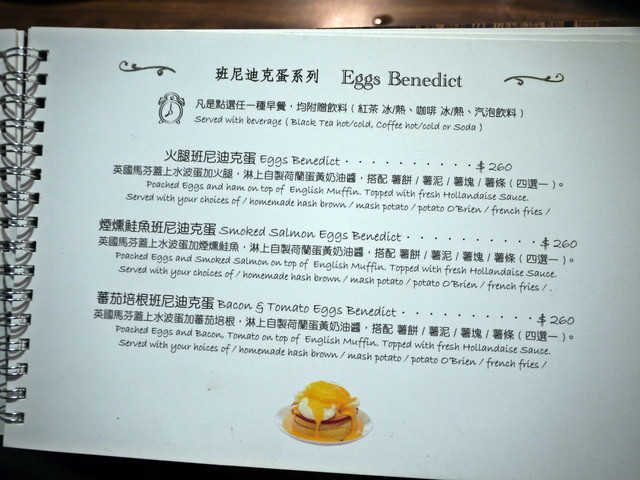 班尼迪克蛋系列 Eggs Benedict
凡是點選任一種早餐，均附贈飲料（紅茶 冰/熱、咖啡 冰/熱、汽泡飲料）
Served with beverage ( Black Tea hot/cold, Coffee hot/cold or Soda )
火腿班尼迪克蛋 Eggs Benedict · · · · · · · · · · $ 260
英國馬芬蓋上水波蛋加火腿，淋上自製荷蘭蛋黃奶油醬，搭配 薯餅 / 薯泥 / 薯塊 / 薯條（四選一）。
Poached Eggs and ham on top of English Muffin. Topped with fresh Hollandaise Sauce.
Served with your choices of / homemade hash brown / mash potato / potato O'Brien / french fries /
煙燻鮭魚班尼迪克蛋 Smoked Salmon Eggs Benedict · · · · · · · · · · $ 260
英國馬芬蓋上水波蛋加煙燻鮭魚，淋上自製荷蘭蛋黃奶油醬，搭配 薯餅 / 薯泥 / 薯塊 / 薯條（四選一）。
Poached Eggs and Smoked Salmon on top of English Muffin. Topped with fresh Hollandaise Sauce.
Served with your choices of / homemade hash brown / mash potato / potato O'Brien / french fries / .
蕃茄培根班尼迪克蛋 Bacon & Tomato Eggs Benedict · · · · · · · · · · $ 260
英國馬芬蓋上水波蛋加蕃茄培根，淋上自製荷蘭蛋黃奶油醬，搭配 薯餅 / 薯泥 / 薯塊 / 薯條（四選一）。
Poached Eggs and Bacon, Tomato on top of English Muffin. Topped with fresh Hollandaise Sauce.
Served with your hoices of / homemade hash brown / mash potato / potato O'Brien / french fries /